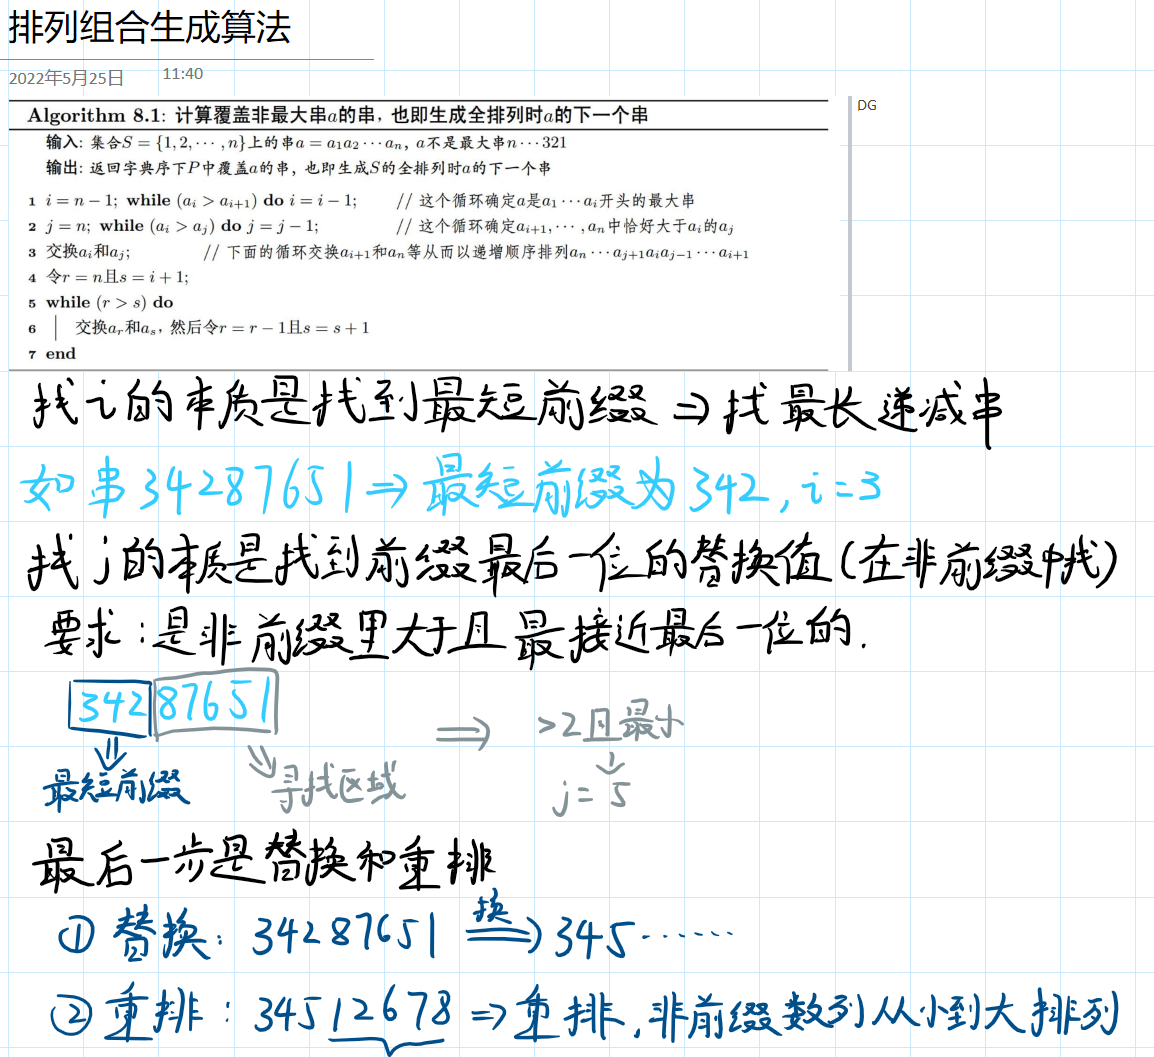 排列组合生成算法
2022年5月25日 11:40
DG
Algorithm 8.1: 计算覆盖非最大串a的串，也即生成全排列时a的下一个串
输入: 集合S = {1, 2, ⋯ , n}上的串a = a₁a₂ ⋯ aₙ, a不是最大串n ⋯ 321
输出: 返回字典序下P中覆盖a的串，也即生成S的全排列时a的下一个串
1 i = n − 1; while (aᵢ > aᵢ₊₁) do i = i − 1; // 这个循环确定a是a₁ ⋯ aᵢ开头的最大串
2 j = n; while (aᵢ > aⱼ) do j = j − 1; // 这个循环确定aᵢ₊₁, ⋯ , aₙ中恰好大于aᵢ的aⱼ
3 交换aᵢ和aⱼ; // 下面的循环交换aᵢ₊₁和aₙ等从而以递增顺序排列aₙ ⋯ aⱼ₊₁aᵢaⱼ₋₁ ⋯ aᵢ₊₁
4 令r = n且s = i + 1;
5 while (r > s) do
6 交换aᵣ和aₛ，然后令r = r − 1且s = s + 1
7 end
找i的本质是找到最短前缀 ⇒ 找最长递减串
如串34287651 ⇒ 最短前缀为342, i=3
找j的本质是找到前缀最后一位的替换值(在非前缀中找)
要求：是非前缀里大于且最接近最后一位的.
342 87651 ⇒ >2且最小
最短前缀 寻找区域 j = 5
最后一步是替换和重排
① 替换: 34287651 换⇒ 345⋯⋯
② 重排: 34512678 ⇒ 重排, 非前缀数列从小到大排列